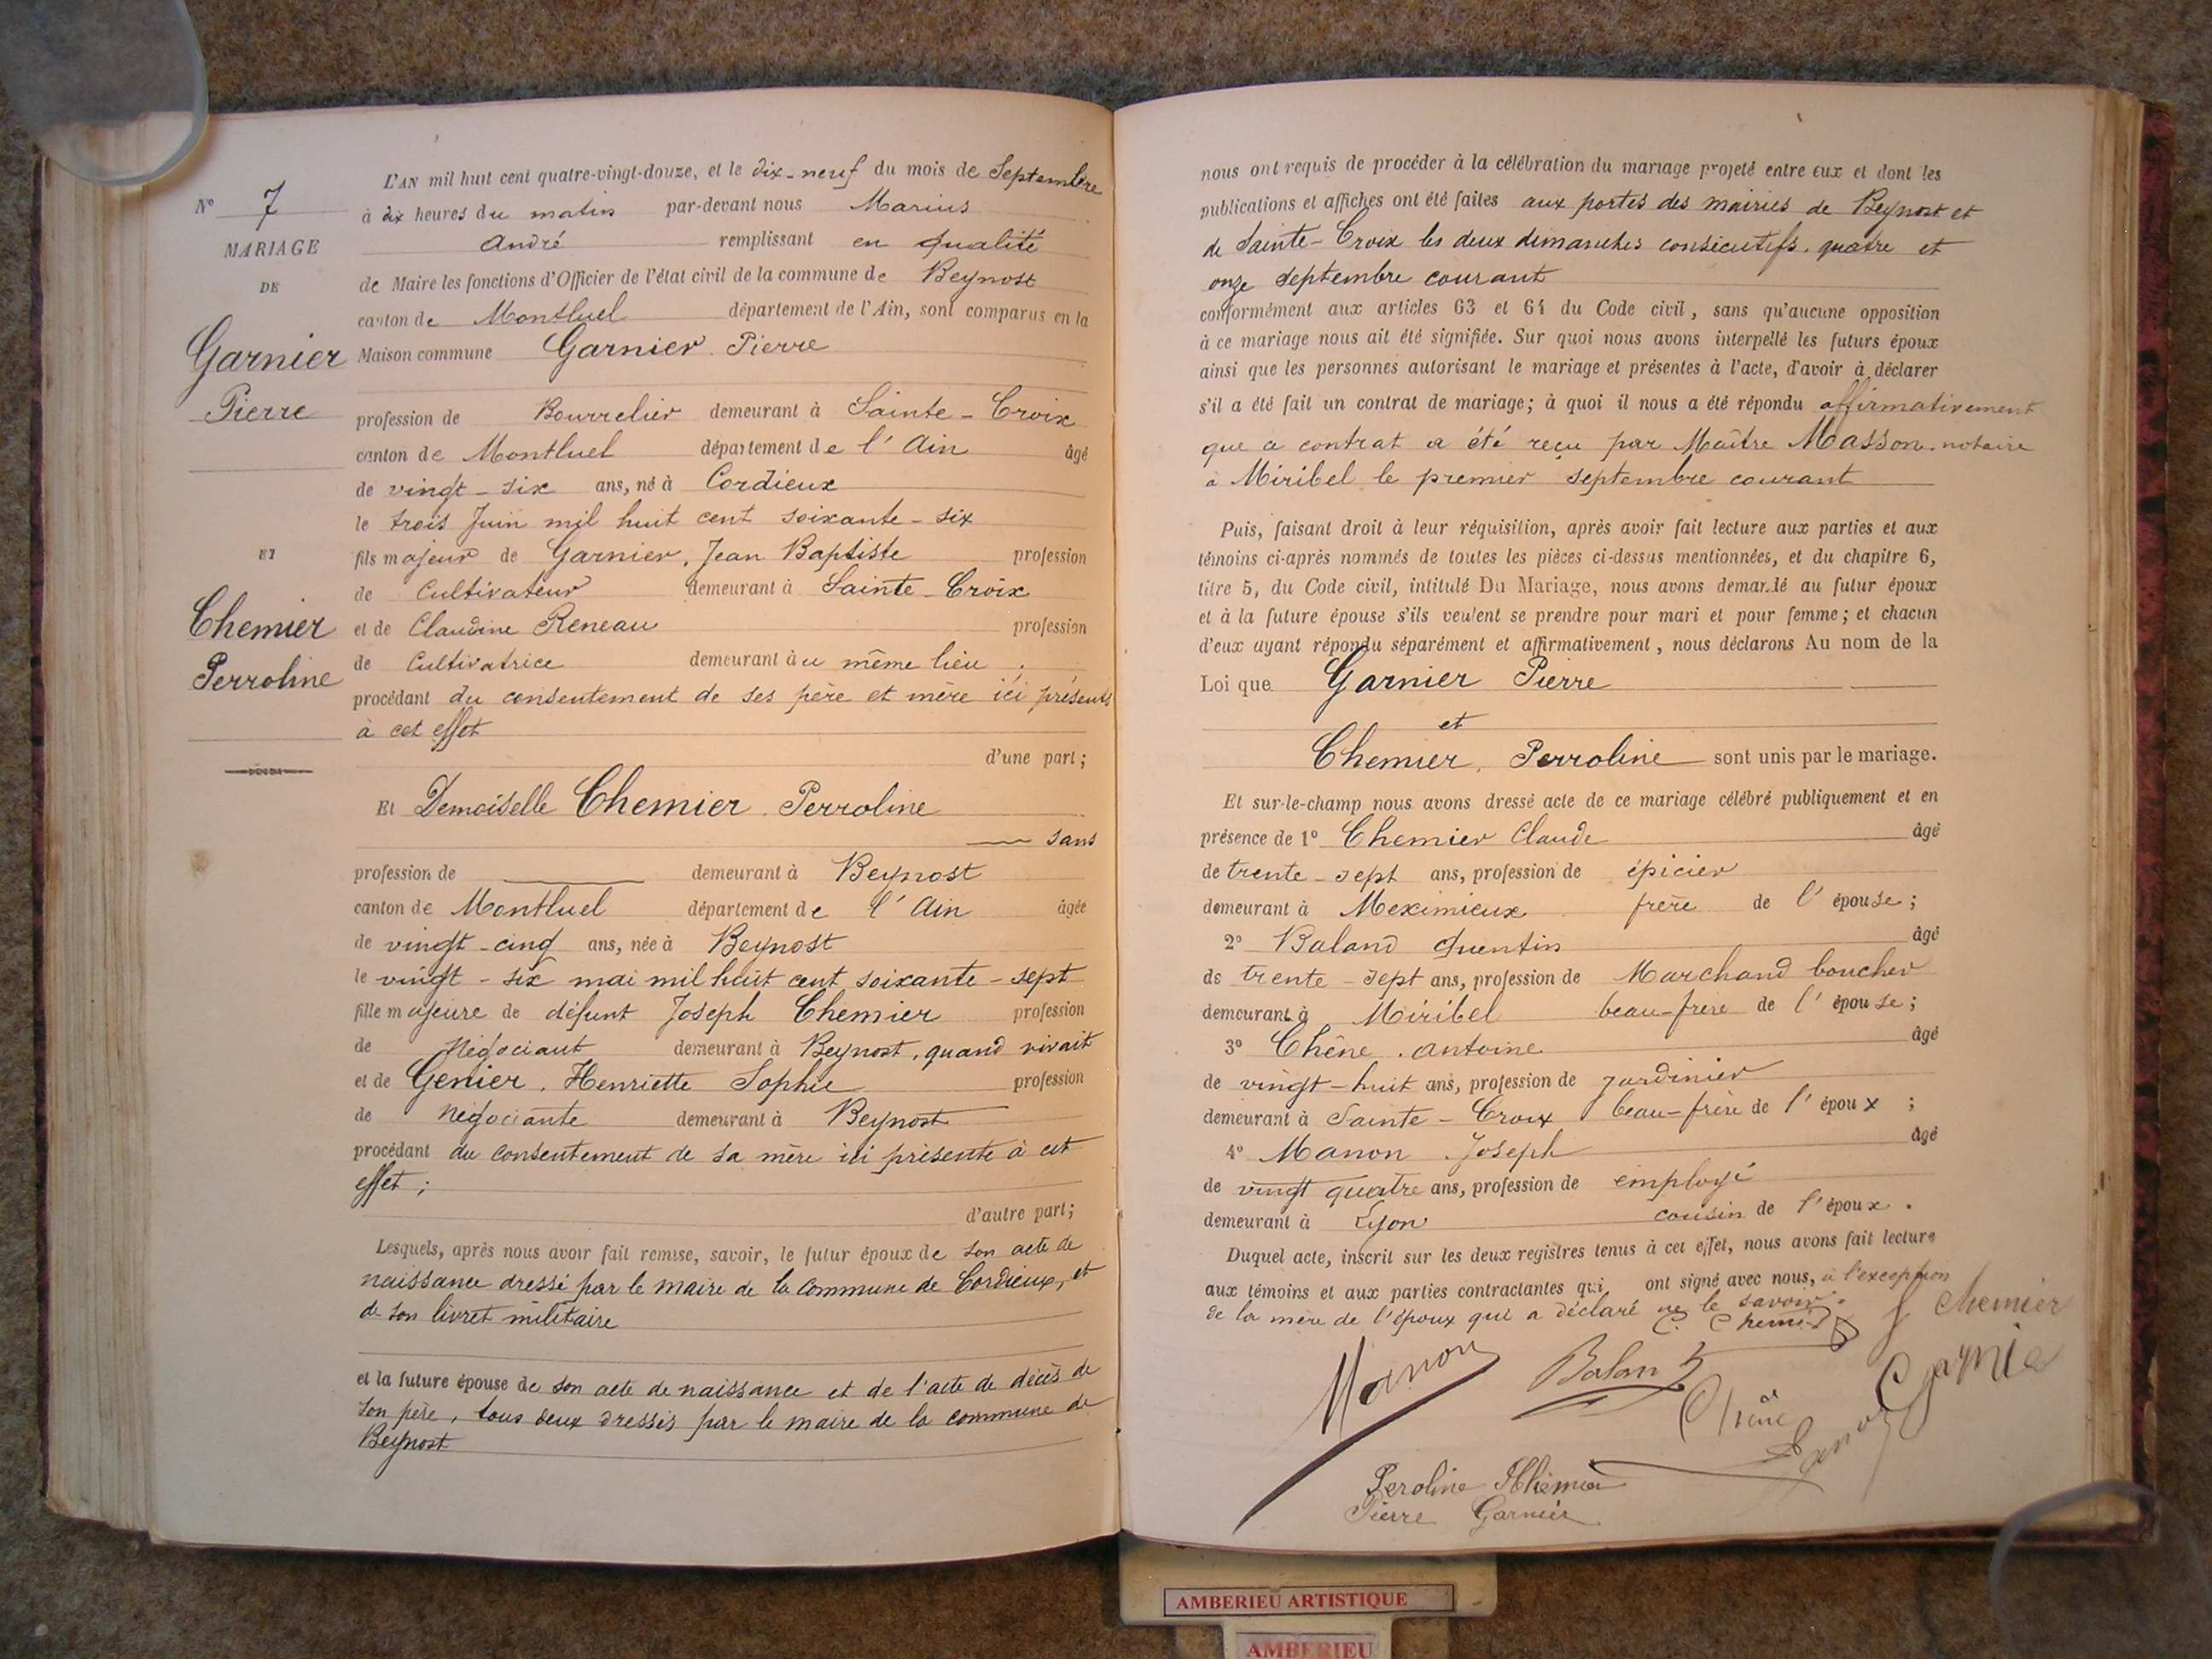 N° 7
MARIAGE
DE
Garnier
Pierre
ET
Chemier
Perroline
L'AN mil huit cent quatre-vingt-douze, et le dix-neuf du mois de Septembre
à dix heures du matin par-devant nous Marius
André remplissant en qualité
de Maire les fonctions d'Officier de l'état civil de la commune de Beynost
canton de Montluel département de l'Ain, sont comparus en la
Maison commune Garnier Pierre
profession de Bourrelier demeurant à Sainte-Croix
canton de Montluel département de l'Ain âgé
de vingt-six ans, né à Cordieux
le trois Juin mil huit cent soixante-six
fils majeur de Garnier, Jean Baptiste profession
de Cultivateur demeurant à Sainte-Croix
et de Claudine Reneau profession
de Cultivatrice demeurant au même lieu.
procédant du consentement de ses père et mère ici présents
à cet effet
d'une part;
Et Demoiselle Chemier, Perroline
sans
profession de demeurant à Beynost
canton de Montluel département de l'Ain âgée
de vingt-cinq ans, née à Beynost
le vingt-six mai mil huit cent soixante-sept
fille majeure de défunt Joseph Chemier profession
de Négociant demeurant à Beynost, quand vivait
et de Genier, Henriette Sophie profession
de Négociante demeurant à Beynost
procédant du consentement de sa mère ici présente à cet
effet;
d'autre part;
Lesquels, après nous avoir fait remise, savoir, le futur époux de son acte de
naissance dressé par le maire de la commune de Cordieux, et
de son livret militaire
et la future épouse de son acte de naissance et de l'acte de décès de
son père, tous deux dressés par le maire de la commune de
Beynost
nous ont requis de procéder à la célébration du mariage projeté entre eux et dont les
publications et affiches ont été faites aux portes des mairies de Beynost et
de Sainte-Croix les deux dimanches consécutifs, quatre et
onze septembre courant
conformément aux articles 63 et 64 du Code civil, sans qu'aucune opposition
à ce mariage nous ait été signifiée. Sur quoi nous avons interpellé les futurs époux
ainsi que les personnes autorisant le mariage et présentes à l'acte, d'avoir à déclarer
s'il a été fait un contrat de mariage; à quoi il nous a été répondu affirmativement
que ce contrat a été reçu par Maître Masson, notaire
à Miribel le premier septembre courant
Puis, faisant droit à leur réquisition, après avoir fait lecture aux parties et aux
témoins ci-après nommés de toutes les pièces ci-dessus mentionnées, et du chapitre 6,
titre 5, du Code civil, intitulé Du Mariage, nous avons demandé au futur époux
et à la future épouse s'ils veulent se prendre pour mari et pour femme; et chacun
d'eux ayant répondu séparément et affirmativement, nous déclarons Au nom de la
Loi que Garnier Pierre
et
Chemier, Perroline sont unis par le mariage.
Et sur-le-champ nous avons dressé acte de ce mariage célébré publiquement et en
présence de 1° Chemier Claude âgé
de trente-sept ans, profession de épicier
demeurant à Meximieux frère de l'épouse;
2° Baland Quentin âgé
de trente-sept ans, profession de Marchand boucher
demeurant à Miribel beau-frère de l'épouse;
3° Chêne, Antoine âgé
de vingt-huit ans, profession de Jardinier
demeurant à Sainte-Croix beau-frère de l'époux;
4° Manon Joseph âgé
de vingt quatre ans, profession de employé
demeurant à Lyon cousin de l'époux.
Duquel acte, inscrit sur les deux registres tenus à cet effet, nous avons fait lecture
aux témoins et aux parties contractantes qui ont signé avec nous, à l'exception
de la mère de l'époux qui a déclaré ne le savoir.
Chemier
Manon
Chêne
Pierre Garnier
AMBERIEU ARTISTIQUE
AMBERIEU